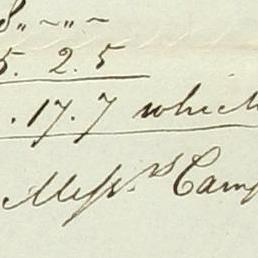 8 " ~ " ~
5. 2. 5
. 17. 7 which
Messrs Camp